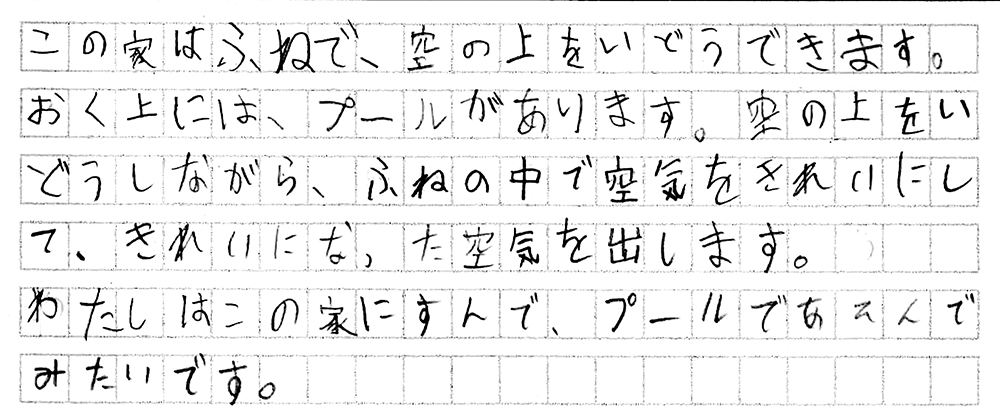 この家はふねで、空の上をいどうできます。
おく上には、プールがあります。空の上をい
どうしながら、ふねの中で空気をきれいにし
て、きれいになった空気を出します。
わたしはこの家にすんで、プールであそんで
みたいです。